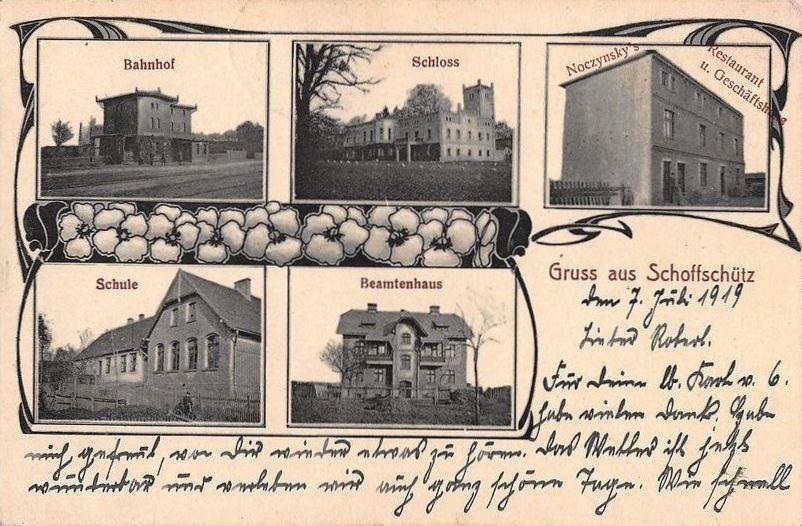 Bahnhof
Schloss
Noczynsky's Restaurant
u. Geschäftshaus
Schule
Beamtenhaus
Gruss aus Schoffschütz
den 7. Juli 1919
Lieber Roterl.
Für Deinen lb. Karte v. 6.
habe vielen Dank, habe
mich gefreut, von Dir wieder etwas zu hören. Das Wetter ist jetzt
wunderbar und verleben wir auch ganz schöne Tage. Wie schnell